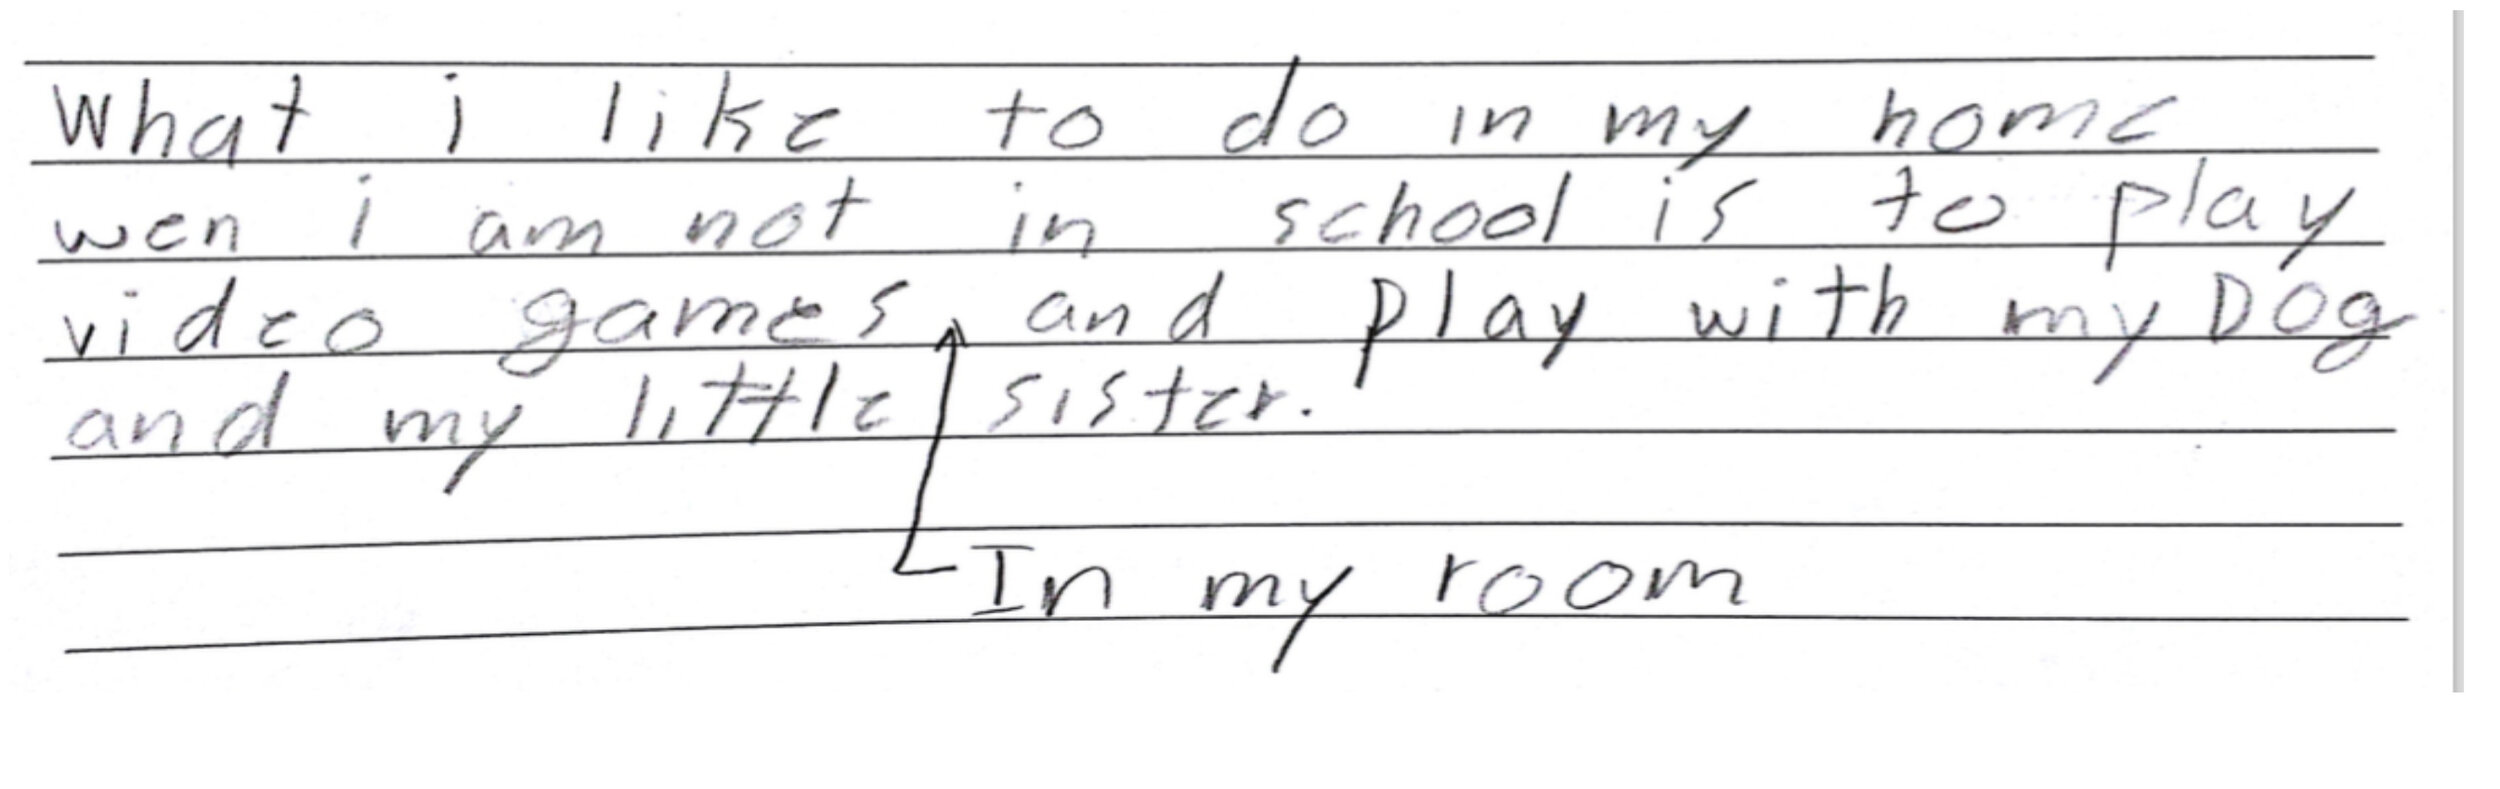 What i like to do in my home
wen i am not in school is to play
video games and play with my Dog
and my little sister.
In my room